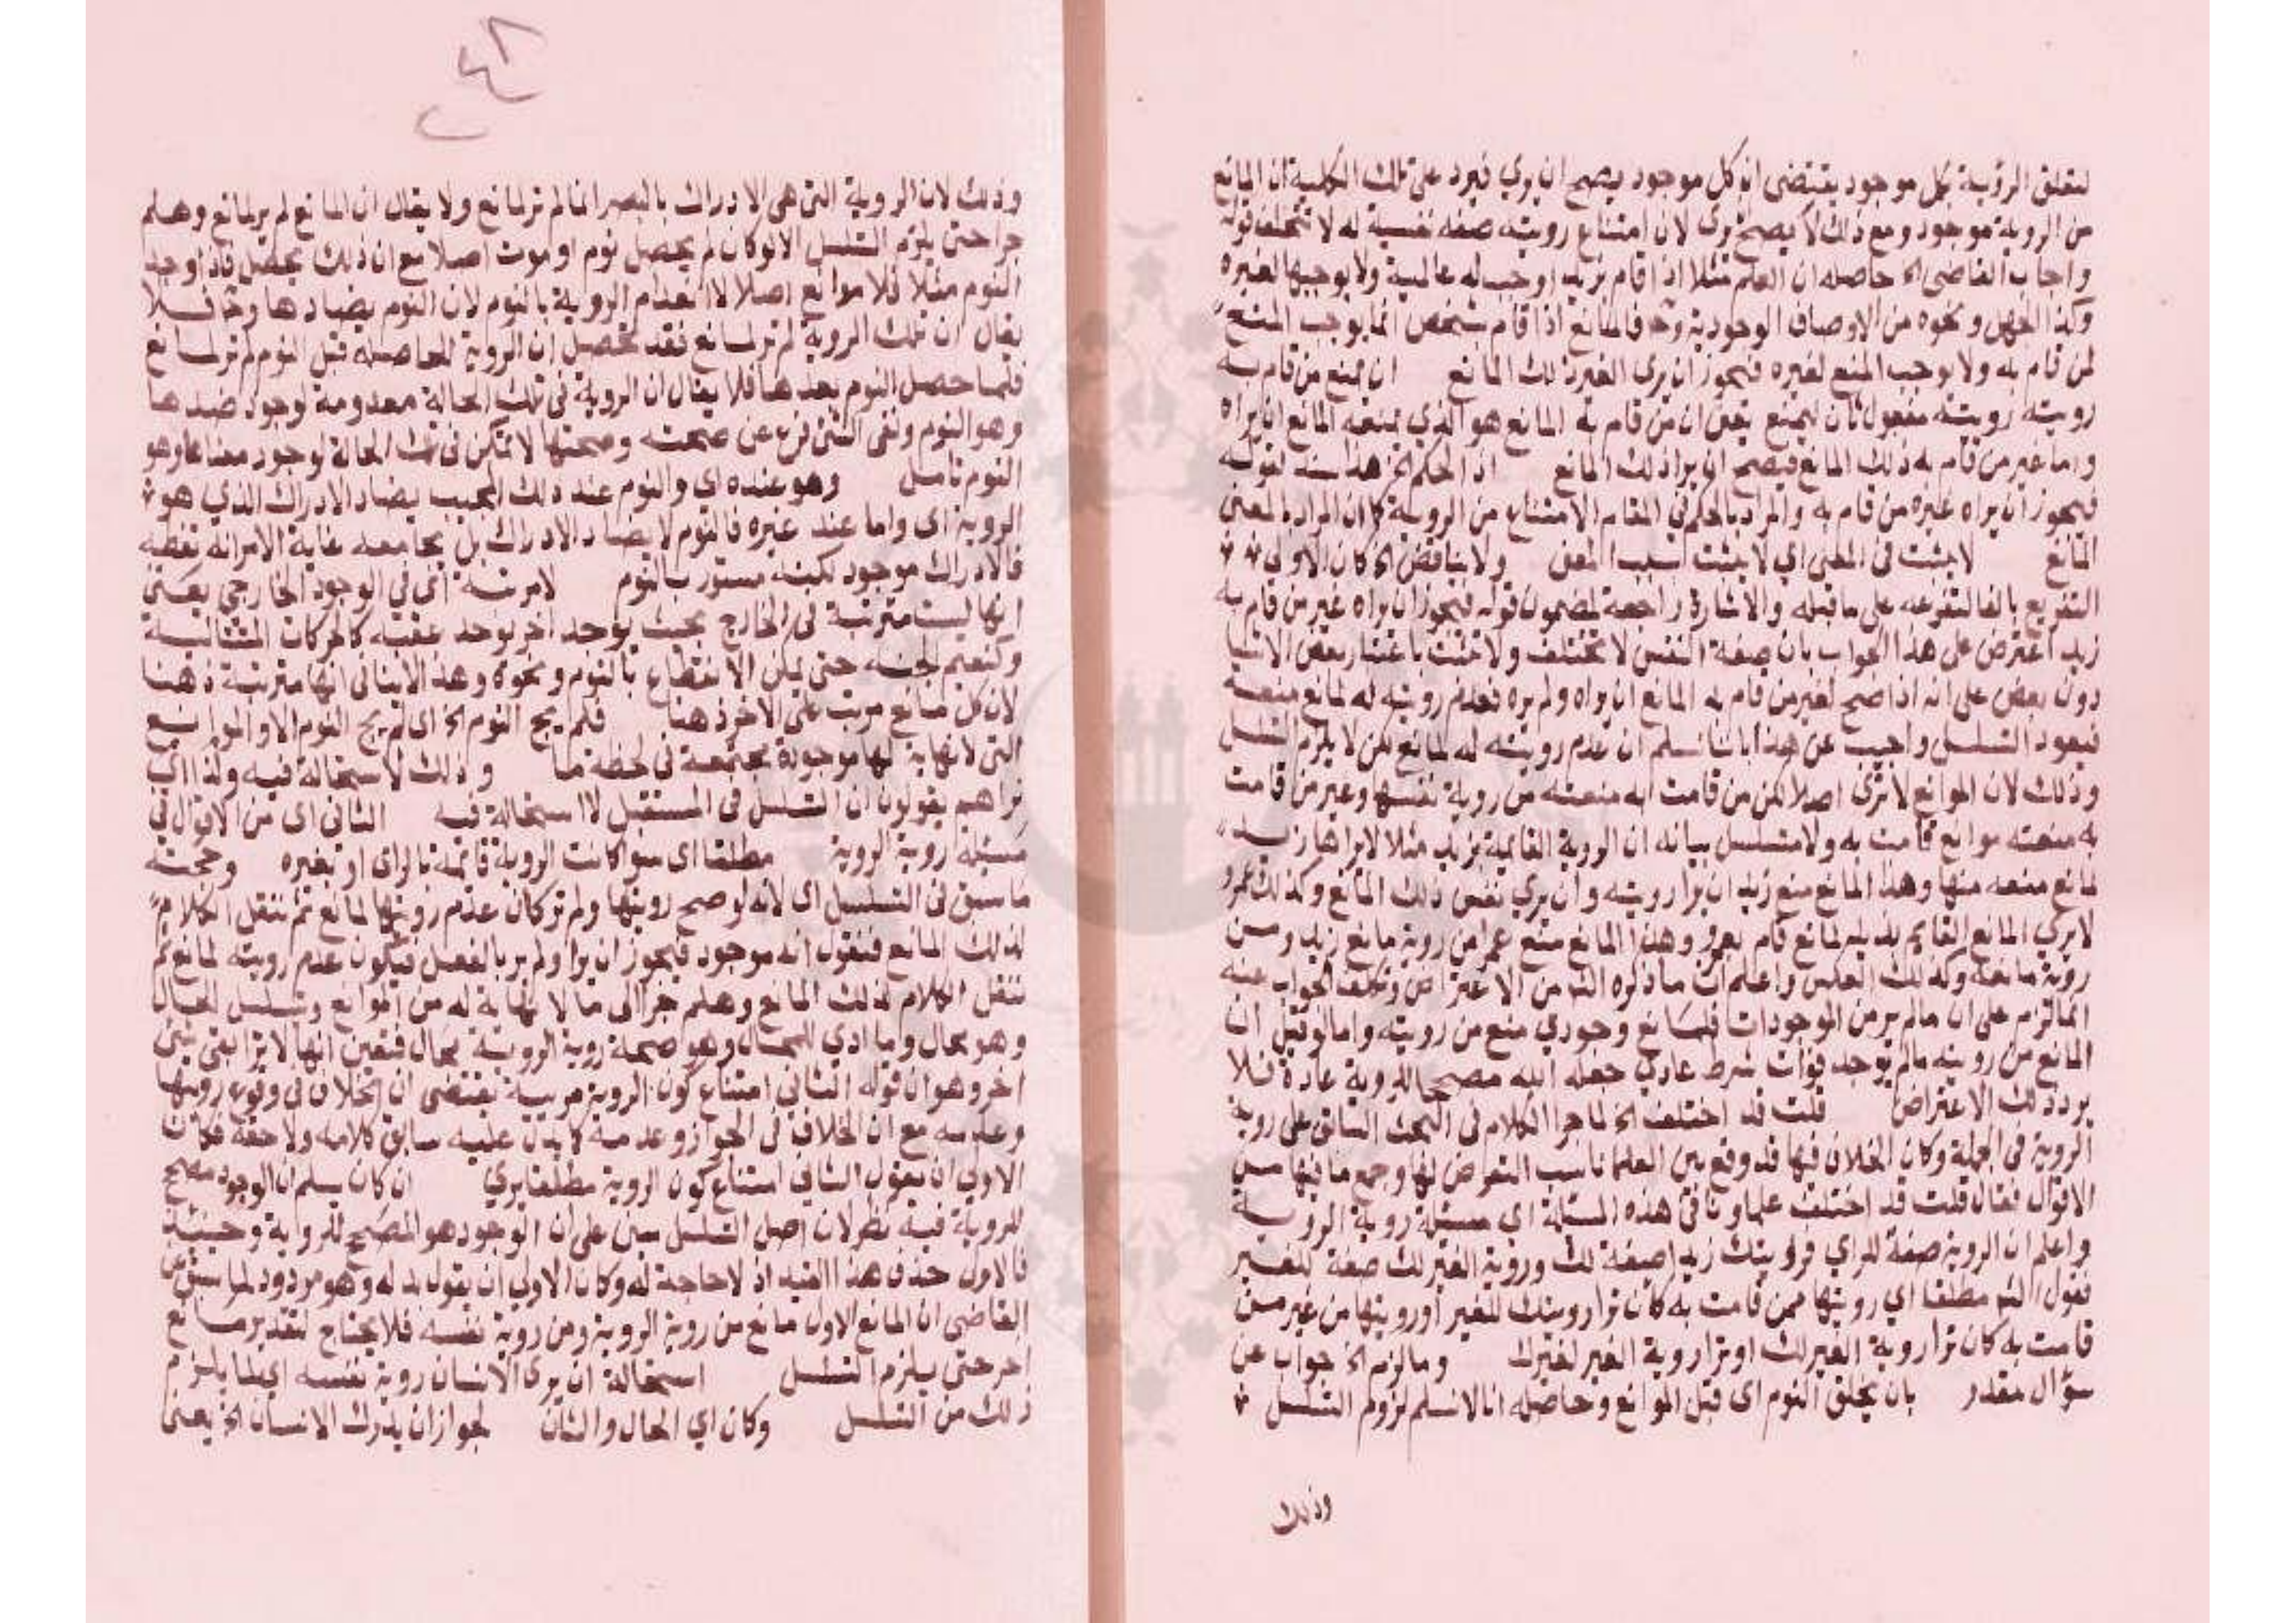 لتعلق الرؤية بكل موجود يقتضى ان كل موجود يصح ان يري فيرد على تلك الكلية ان المانع
من الروية موجود ومع ذلك لا يصح يرى لان امتناع رويته صفة نفسية له لا تتخلف قوله
واجاب القاضى الخ حاصله ان العلم مثلا اذا قام بزيد اوجب له عالمية ولا يوجبها لغيره
وكذا الجهل ونحوه من الاوصاف الوجودية وح فالمانع اذا قام بشخص انما يوجب المنع
لمن قام به ولا يوجب المنع لغيره فيجوز ان يرى الغير ذلك المانع ان يمنع من قام به
رويته رويته مفعول ثان ليمنع يعنى ان من قام به المانع هو الذي يمنعه المانع ان يراه
واما غير من قام به ذلك المانع فيصح ان يرا ذلك المانع اذ الحكم الخ هذا سند لقوله
فيجوز ان يراه غيره من قام به والمراد بالحكم فى المقام الامتناع من الروية كما ان المراد بالمعنى
المانع لا يثبت فى المعنى اي لا يثبت لسبب المعنى ولا يناقض الخ كان الاولى
التفريع بالفا لتفرعه على ما قبله والاشارة راجعة لمضمون قوله فيجوز ان يراه غير من قام به
زيد اعترض على هذا الجواب بان صفة النفس لا تختلف ولا تثبت باعتبار بعض الاشيا
دون بعض على انه اذا صح لغير من قام به المانع ان يراه ولم يره فعدم رويته له لمانع منعه
فيعود التسلسل واجيب عن هذا باننا نسلم ان عدم رويته له لمانع لكن لا يلزم التسلسل
وذلك لان الموانع لا ترى اصلا لكن من قامت به منعته من روية نفسها وغير من قامت
به منعته موانع قامت به ولا متسلسل بيانه ان الروية القائمة بزيد مثلا لا يراها زيد
لمانع منعه منها وهذا المانع منع زيد ان يرا رويته وان يري نفس ذلك المانع وكذلك عمرو
لا يري المانع القايم بذيد لمانع قام بعمرو وهذا المانع منع عمرا من روية مانع زيد ومن
روية مانعه وكذلك العكس واعلم ان ما ذكره الش من الاعتراض وتكلف الجواب عنه
انما التزم على ان ما لم ير من الموجودات فلمانع وجودي منع من رويته واما لو قيل ان
المانع من رويته ما لم يوجد فوات شرط عادي جعله الله مصححا للروية عادة فلا
يرد ذلك الاعتراض قلت قد اختلف الخ لما جرا الكلام فى البحث السابق على روية
الروية فى الجملة وكان الخلاف فيها قد وقع بين العلما ناسب التعرض لها وجمع ما فيها من
الاقوال فقال قلت قد اختلف علماونا فى هذه المسئلة اي مسئلة روية الروية
واعلم ان الروية صفة للراي فرويتك زيدا صفة لك وروية الغير لك صفة للغير
فقول الش مطلقا اي رويتها ممن قامت به كان ترا رويتك للغير او رويتها من غير من
قامت به كان ترا روية الغير لك او ترا روية الغير لغيرك وما لزم الخ جواب عن
سؤال مقدر بان يخلق النوم اى قبل الموانع وحاصله انا لا نسلم لزوم التسلسل
وذلك
٤٨
وذلك لان الروية التى هى الادراك بالبصر انما لم تر لمانع ولا يقال ان المانع لم ير لمانع وهلم
جرا حتى يلزم التسلسل الا لو كان لم يحصل نوم او موت اصلا مع ان ذلك يحصل فاذا وجد
النوم مثلا فلا موانع اصلا لانعدام الروية بالنوم لان النوم يضادها وح فلا
يقال ان تلك الروية لم تر لمانع فقد تحصل ان الروية الحاصلة قبل النوم لم تر لمانع
فلما حصل النوم بعدها فلا يقال ان الروية فى تلك الحالة معدومة لوجود ضدها
وهو النوم ونفى الشى فرع عن صحته وصحتها لا تمكن فى تلك الحالة لوجود مضادها وهو
النوم تامل وهو عنده اى والنوم عند ذلك المجيب يضاد الادراك الذي هو
الروية اى واما عند غيره فالنوم لا يضاد الادراك بل يجامعه غاية الامر انه تغطيه
فالادراك موجود لكنه مستور بالنوم لا مرتبة اى فى الوجود الخارجي يعنى
انها ليست مترتبة فى الخارج بحيث يوجد اخر يوجد عقبه كالحركات المتتالية
وكنعيم الجنة حتى يمكن الانقطاع بالنوم ونحوه وهذا لا ينافى انها مترتبة ذهنا
لان كل مانع مرتب على الاخر ذهنا فلم يجئ النوم الخ اى لم يجئ النوم الا والموانع
التى لا نهاية لها موجودة مجتمعة فى لحظة ما وذلك لا استحالة فيه ولذا اى
تراهم يقولون ان التسلسل فى المستقبل لا استحالة فيه الثانى اى من الاقوال فى
مسئلة روية الروية مطلقا اى سوا كانت الروية قائمة بالراى او بغيره وحجته
ما سبق فى التسلسل اى لانه لو صح رويتها ولم تر كان عدم رويتها لمانع ثم ننقل الكلام
لذلك المانع فنقول انه موجود فيجوز ان يرا ولم ير بالفعل فيكون عدم رويته لمانع ثم
ننقل الكلام لذلك المانع وهلم جرا الى ما لا نهاية له من الموانع وتسلسل
وهو محال وما ادي للمحال وهو صحة روية الروية محال فتعين انها لا ترا بقى شئ
اخر وهو ان قوله الثانى امتناع كون الروية مريية يقتضى ان الخلاف فى وقوع رويتها
وعدمه مع ان الخلاف فى الجواز وعدمه كما يدل عليه سابق كلامه ولاحقه فكان
الاولى ان يقول الثانى امتناع كون الروية مطلقا يري ان كان يسلم ان الوجود مصحح
للروية فيه نظر لان اصل التسلسل مبنى على ان الوجود هو المصحح للروية وحينئذ
فالاولى حذف هذا القيد اذ لا حاجة له وكان الاولى ان يقول بدله وهو مردود لما سبق عن
القاضى ان المانع الاول مانع من روية الروية ومن روية نفسه فلا يحتاج لتقدير مانع
اخر حتى يلزم التسلسل استحالة ان يرى الانسان روية نفسه اي لما يلزم
ذلك من التسلسل وكان اي الحال والشان لجواز ان يدرك الانسان الخ يعنى